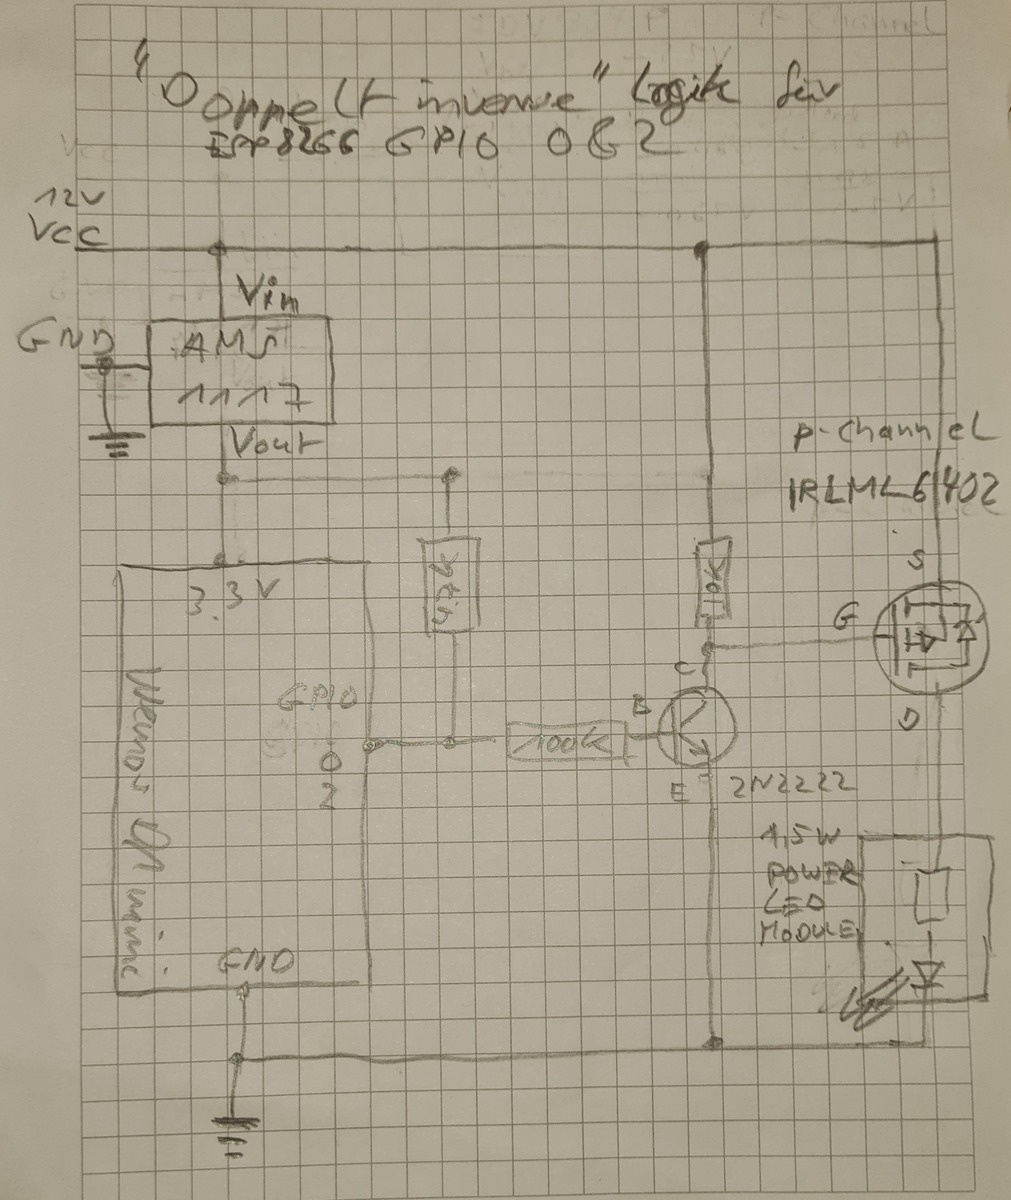 "Doppelt inverse" Logik für
ESP8266 GPIO 0&2
12V
VCC
Vin
GND
AMS
1117
Vout
p-channel
IRLML6402
S
3.3V
10K
G
C
GPIO
B
D
100K
0
2
E
2N2222
4,5W
POWER
LED
MODULE
Wemos D1 mini
GND